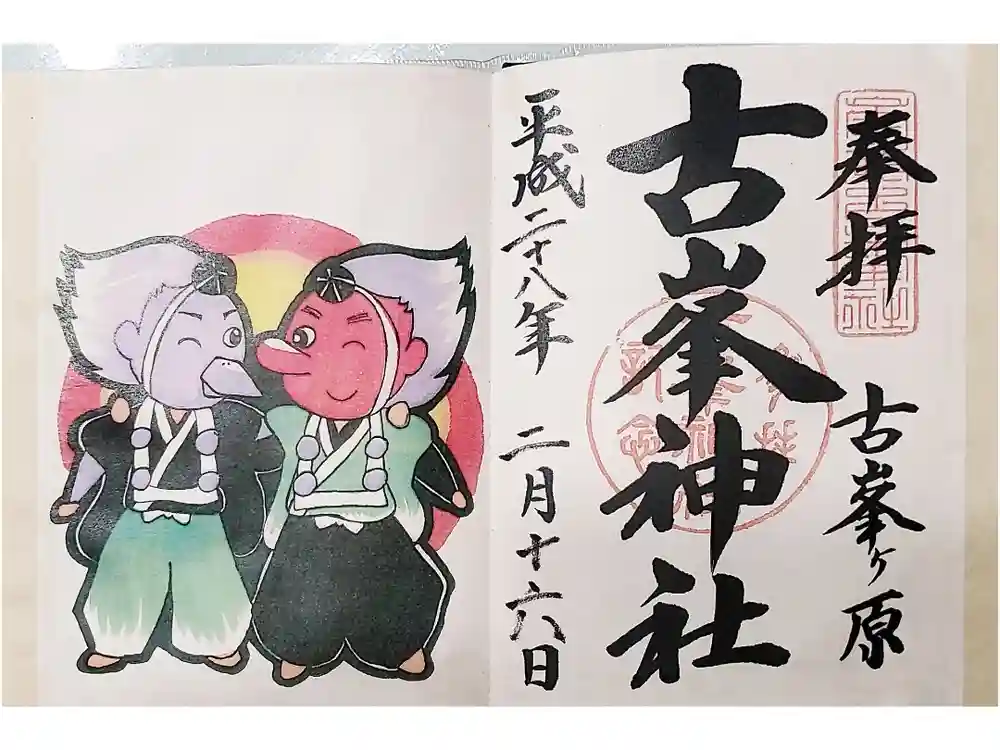 奉拝
古峯ヶ原
古峯神社
平成二十八年 二月十六日